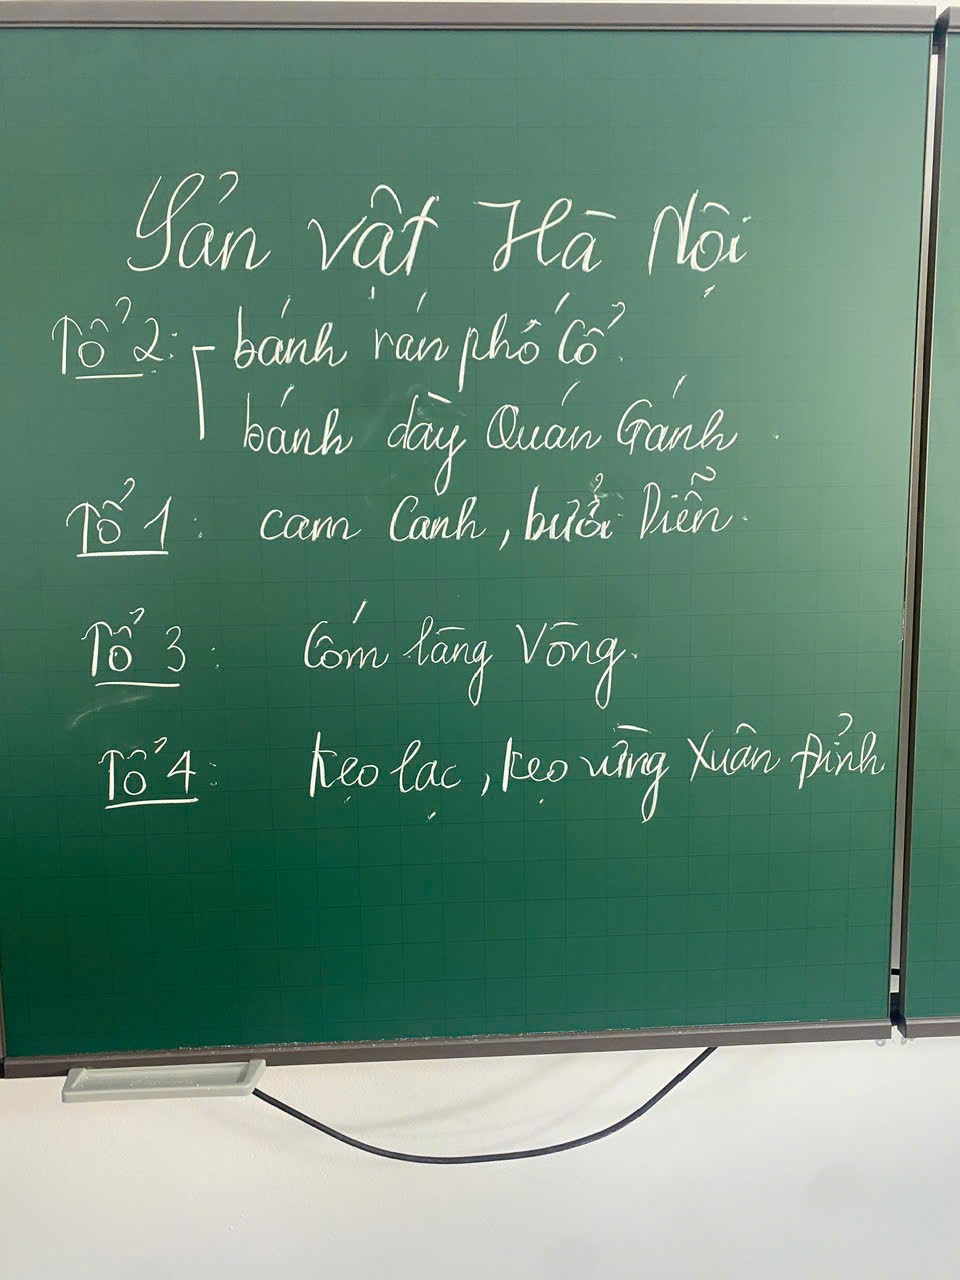 Sản vật Hà Nội
Tổ 2: - bánh rán phố Cổ.
bánh dày Quán Gánh.
Tổ 1: cam Canh, bưởi Diễn.
Tổ 3: Cốm làng Vòng.
Tổ 4: kẹo lạc, kẹo vừng Xuân Đỉnh